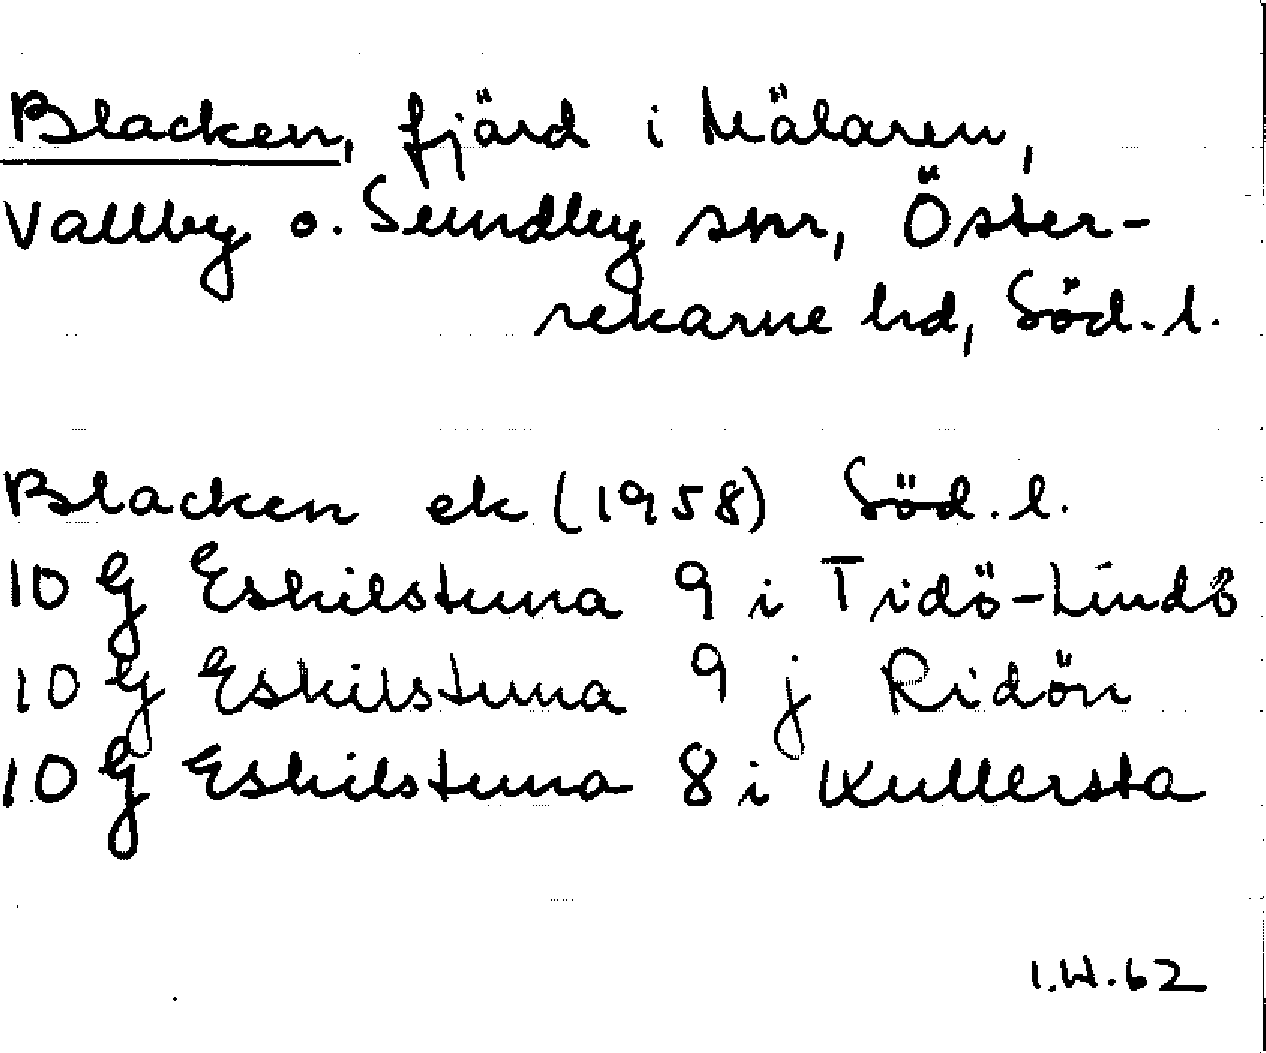 Blacken, fjärd i Mälaren,
Vallby o. Sundby snr, Öster-
rekarne hd, Söd. l.
Blacken ek (1958) Söd. l.
10 G Eskilstuna 9 i Tidö-Lindö
10 G Eskilstuna 9 j Ridön
10 G Eskilstuna 8 i Kullersta
I.W.62